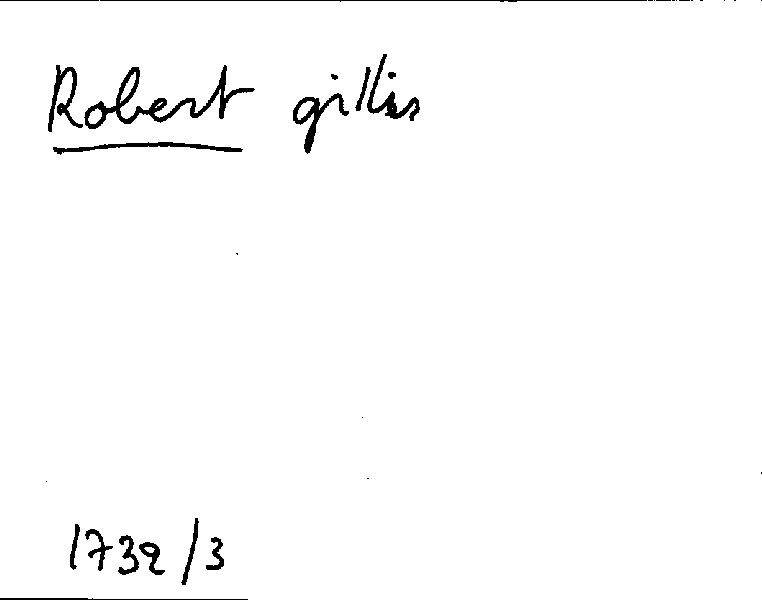 Robert gillis
1732/3